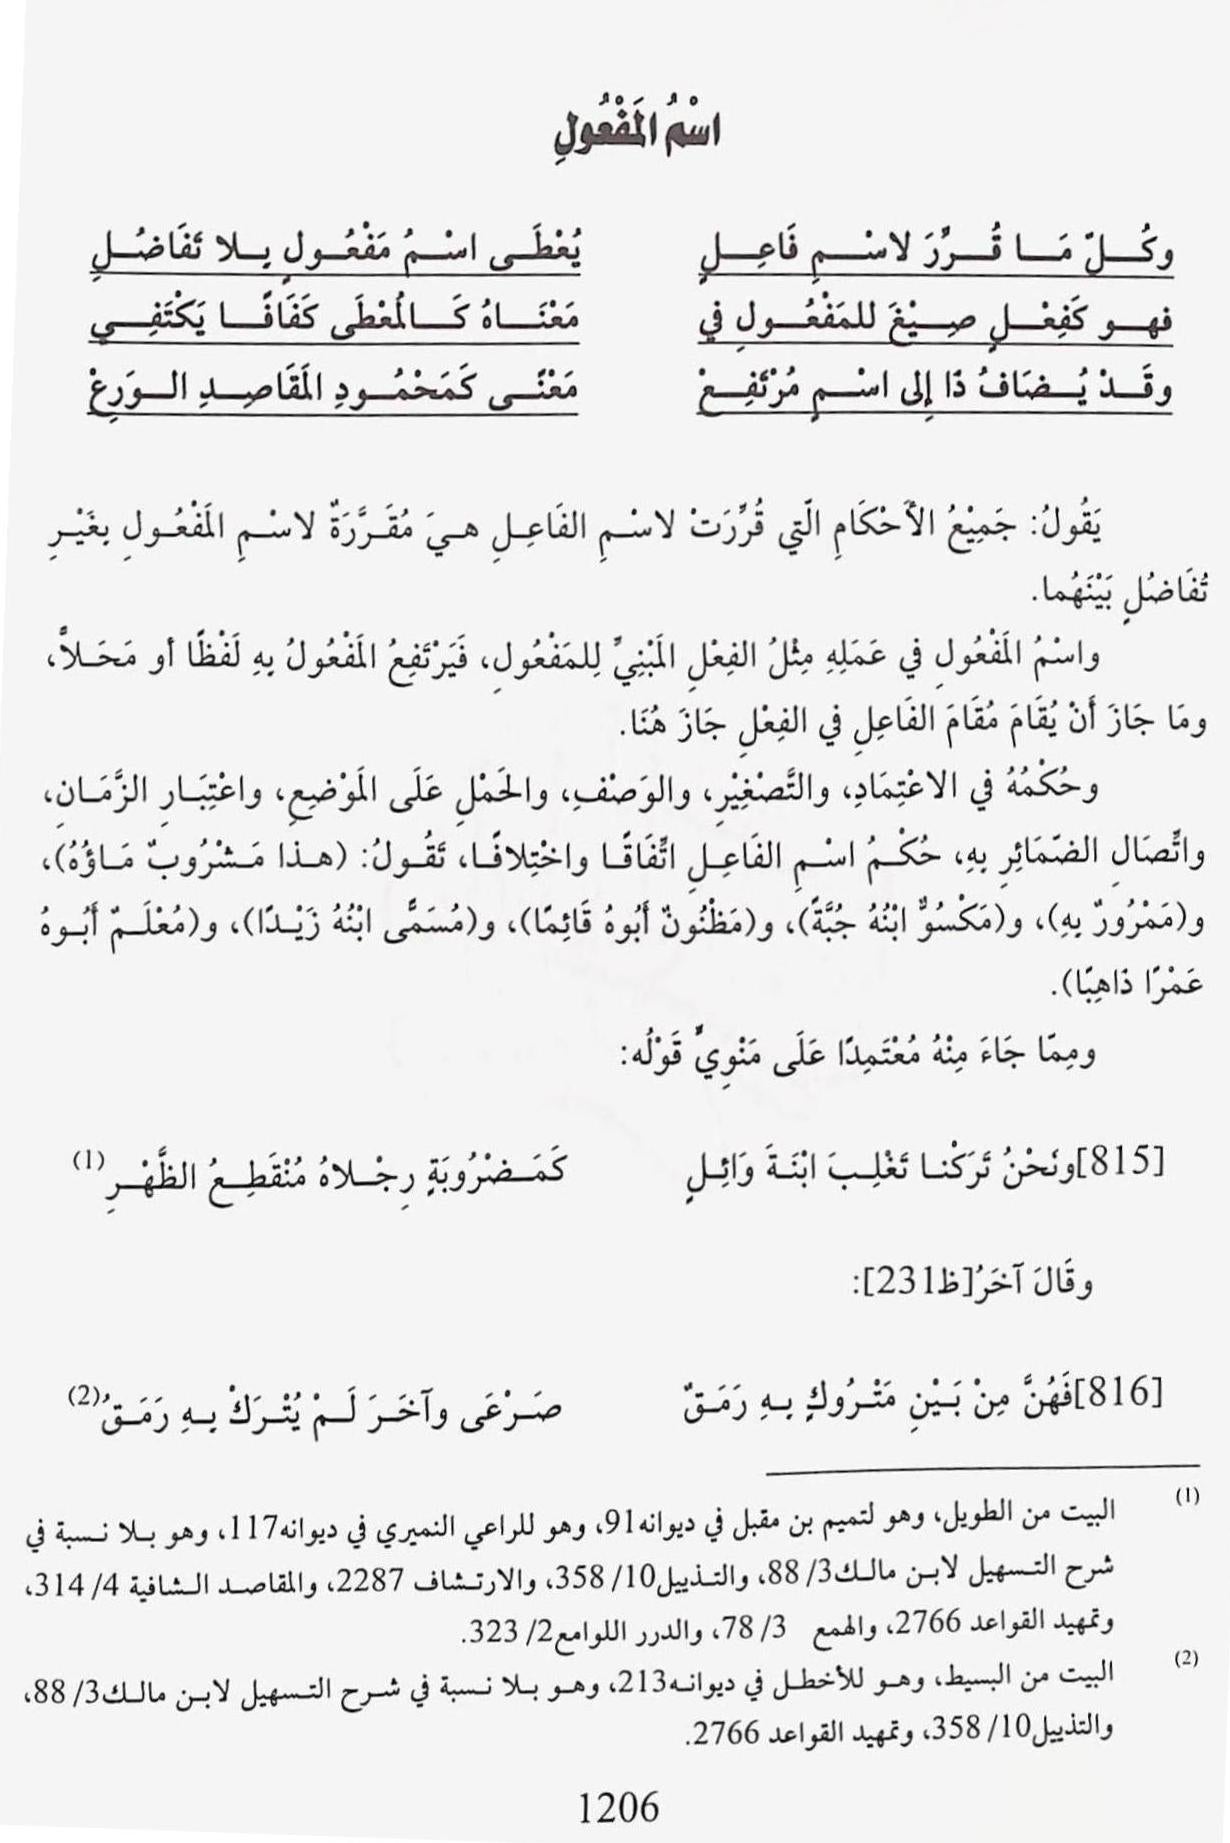 اسْمُ المَفْعُولِ
وكُلّ مَا قُرِّرَ لاسْمِ فَاعِلٍ يُعْطَى اسْمُ مَفْعُولٍ بِلا تَفَاضُلِ
فهو كَفِعْلٍ صِيْغَ للمَفْعُولِ في مَعْنَاهُ كَالمُعْطَى كَفَافًا يَكْتَفِي
وقَدْ يُضَافُ ذَا إِلى اسْمٍ مُرْتَفِعْ مَعْنًى كَمَحْمُودِ المَقَاصِدِ الوَرِعْ
يَقُولُ: جَمِيْعُ الأَحْكَامِ الّتي قُرِّرَتْ لاسْمِ الفَاعِلِ هيَ مُقَرَّرَةٌ لاسْمِ المَفْعُولِ بغَيْرِ
تُفَاضُلٍ بَيْنَهُما.
واسْمُ المَفْعُولِ في عَمَلِهِ مِثْلُ الفِعْلِ المَبْنِيِّ لِلمَفْعُولِ، فَيَرْتَفِعُ المَفْعُولُ بِهِ لَفْظًا أو مَحَلاًّ،
ومَا جَازَ أَنْ يُقَامَ مُقَامَ الفَاعِلِ في الفِعْلِ جَازَ هُنَا.
وحُكْمُهُ في الاعْتِمَادِ، والتَّصْغِيْرِ، والوَصْفِ، والحَمْلِ عَلَى المَوْضِعِ، واعْتِبَارِ الزَّمَانِ،
واتِّصَالِ الضّمَائِرِ بِهِ، حُكْمُ اسْمِ الفَاعِلِ اتِّفَاقًا واخْتِلافًا، تَقُولُ: (هذا مَشْرُوبٌ مَاؤُهُ)،
و(مَمْرُورٌ بِهِ)، و(مَكْسُوٌّ ابْنُهُ جُبَّةً)، و(مَظْنُونٌ أَبُوهُ قَائِمًا)، و(مُسَمًّى ابْنُهُ زَيْدًا)، و(مُعْلَمٌ أَبُوهُ
عَمْرًا ذَاهِبًا).
ومِمّا جَاءَ مِنْهُ مُعْتَمِدًا عَلَى مَنْوِيٍّ قَوْلُه:
[815]ونَحْنُ تَرَكْنا تَغْلِبَ ابْنَةَ وَائِلٍ كَمَضْرُوبَةٍ رِجْلاهُ مُنْقَطِعُ الظَّهْرِ (1)
وقَالَ آخَرُ[ظ231]:
[816]فَهُنَّ مِنْ بَيْنِ مَتْرُوكٍ بِهِ رَمَقٌ صَرْعَى وآخَرَ لَمْ يُتْرَكْ بِهِ رَمَقُ(2)
(1) البيت من الطويل، وهو لتميم بن مقبل في ديوانه91، وهو للراعي النميري في ديوانه117، وهو بلا نسبة في
شرح التسهيل لابن مالك3/ 88، والتذييل10/ 358، والارتشاف 2287، والمقاصد الشافية 4/ 314،
وتمهيد القواعد 2766، والهمع 3/ 78، والدرر اللوامع2/ 323.
(2) البيت من البسيط، وهو للأخطل في ديوانه213، وهو بلا نسبة في شرح التسهيل لابن مالك3/ 88،
والتذييل10/ 358، وتمهيد القواعد 2766.
1206